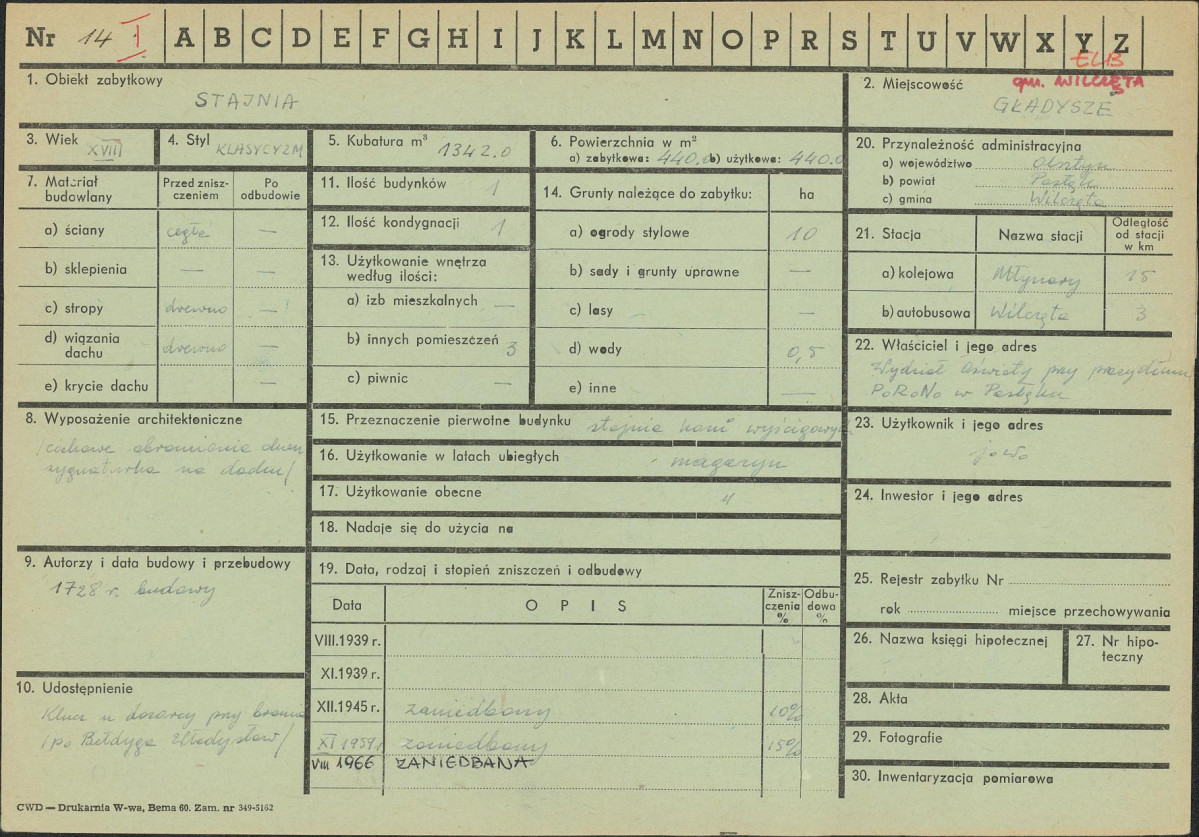 Nr 14 I A B C D E F G H I J K L M N O P R S T U V W X Y Z
ELB
gm. WILCZĘTA
1. Obiekt zabytkowy
STAJNIA
2. Miejscowość
GŁADYSZE
3. Wiek
XVIII
4. Styl
KLASYCYZM
5. Kubatura m³ 1342.0
6. Powierzchnia w m²
a) zabytkowa: 440.0 b) użytkowa: 440.0
7. Materiał budowlany
Przed zniszczeniem
Po odbudowie
a) ściany cegła —
b) sklepienia — —
c) stropy drewno —
d) wiązania dachu drewno —
e) krycie dachu —
8. Wyposażenie architektoniczne
/ciekawe obramienia drzwi
sygnaturka na dachu/
9. Autorzy i data budowy i przebudowy
1728 r. budowy
10. Udostępnienie
Klucz u dozorcy przy bramie
/po Bełdyga Władysław/
11. Ilość budynków 1
12. Ilość kondygnacji 1
13. Użytkowanie wnętrza
według ilości:
a) izb mieszkalnych —
b) innych pomieszczeń 3
c) piwnic —
14. Grunty należące do zabytku: ha
a) ogrody stylowe 10
b) sady i grunty uprawne —
c) lasy —
d) wody 0,5
e) inne —
15. Przeznaczenie pierwotne budynku stajnia koni wyścigowych
16. Użytkowanie w latach ubiegłych magazyn
17. Użytkowanie obecne "
18. Nadaje się do użycia na
19. Data, rodzaj i stopień zniszczeń i odbudowy
Data OPIS Zniszczenia % Odbudowa %
VIII.1939 r.
XI.1939 r.
XII.1945 r. zaniedbany 10%
XI 1959 r. zaniedbany 15%
VIII 1966 ZANIEDBANA
20. Przynależność administracyjna
a) województwo Olsztyn
b) powiat Pasłęk
c) gmina Wilczęta
21. Stacja
Nazwa stacji
Odległość od stacji w km
a) kolejowa Młynary 15
b) autobusowa Wilczęta 3
22. Właściciel i jego adres
Wydział Oświaty przy prezydium
PoRoNo w Pasłęku
23. Użytkownik i jego adres
jowo
24. Inwestor i jego adres
25. Rejestr zabytku Nr
rok miejsce przechowywania
26. Nazwa księgi hipotecznej
27. Nr hipoteczny
28. Akta
29. Fotografie
30. Inwentaryzacja pomiarowa
CWD — Drukarnia W-wa, Bema 60. Zam. nr 349-5162